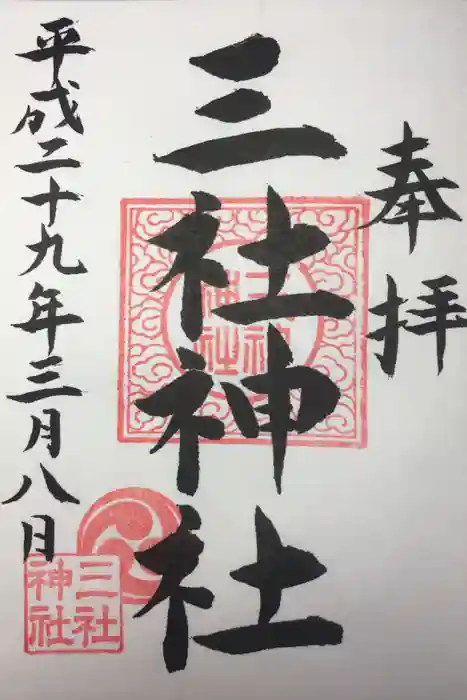 奉拝
三社神社
平成二十九年三月八日
三社
神社